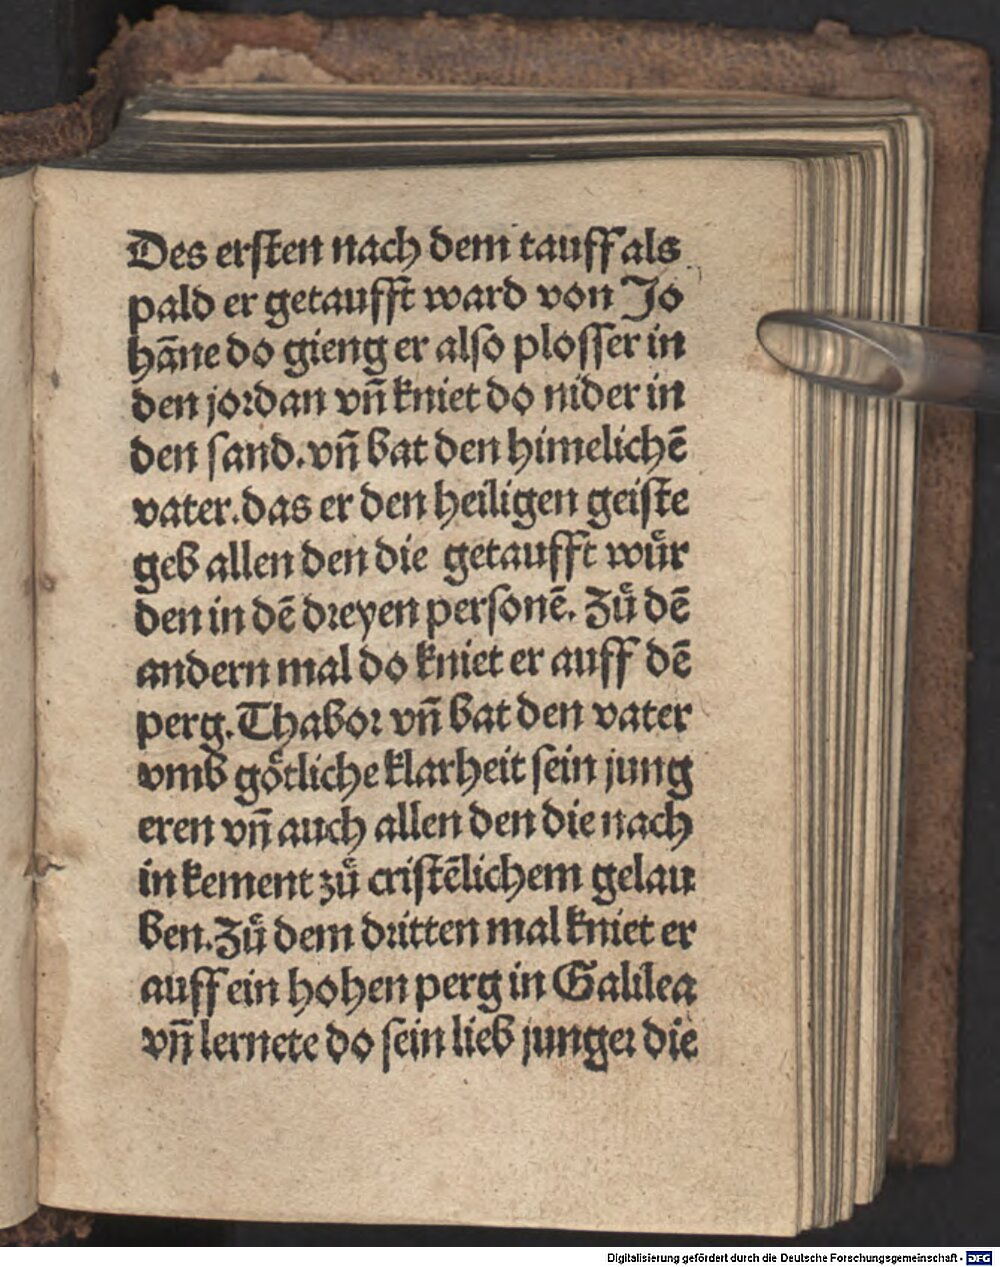 Des ersten nach dem tauff als
pald er getaufft ward von Jo
hāne do gieng er also plosser in
den jordan vñ kniet do nider in
den sand. vñ bat den himelichē
vater. das er den heiligen geiste
geb allen den die getaufft wuͤr
den in dē dreyen personē. Zuͦ dē
andern mal do kniet er auff dē
perg. Thabor vñ bat den vater
vmb goͤtliche klarheit sein jung
eren vñ auch allen den die nach
in kement zuͦ cristēlichem gelau
ben. Zuͦ dem dritten mal kniet er
auff ein hohen perg in Galilea
vñ lernete do sein lieb junger die
Digitalisierung gefördert durch die Deutsche Forschungsgemeinschaft - DFG